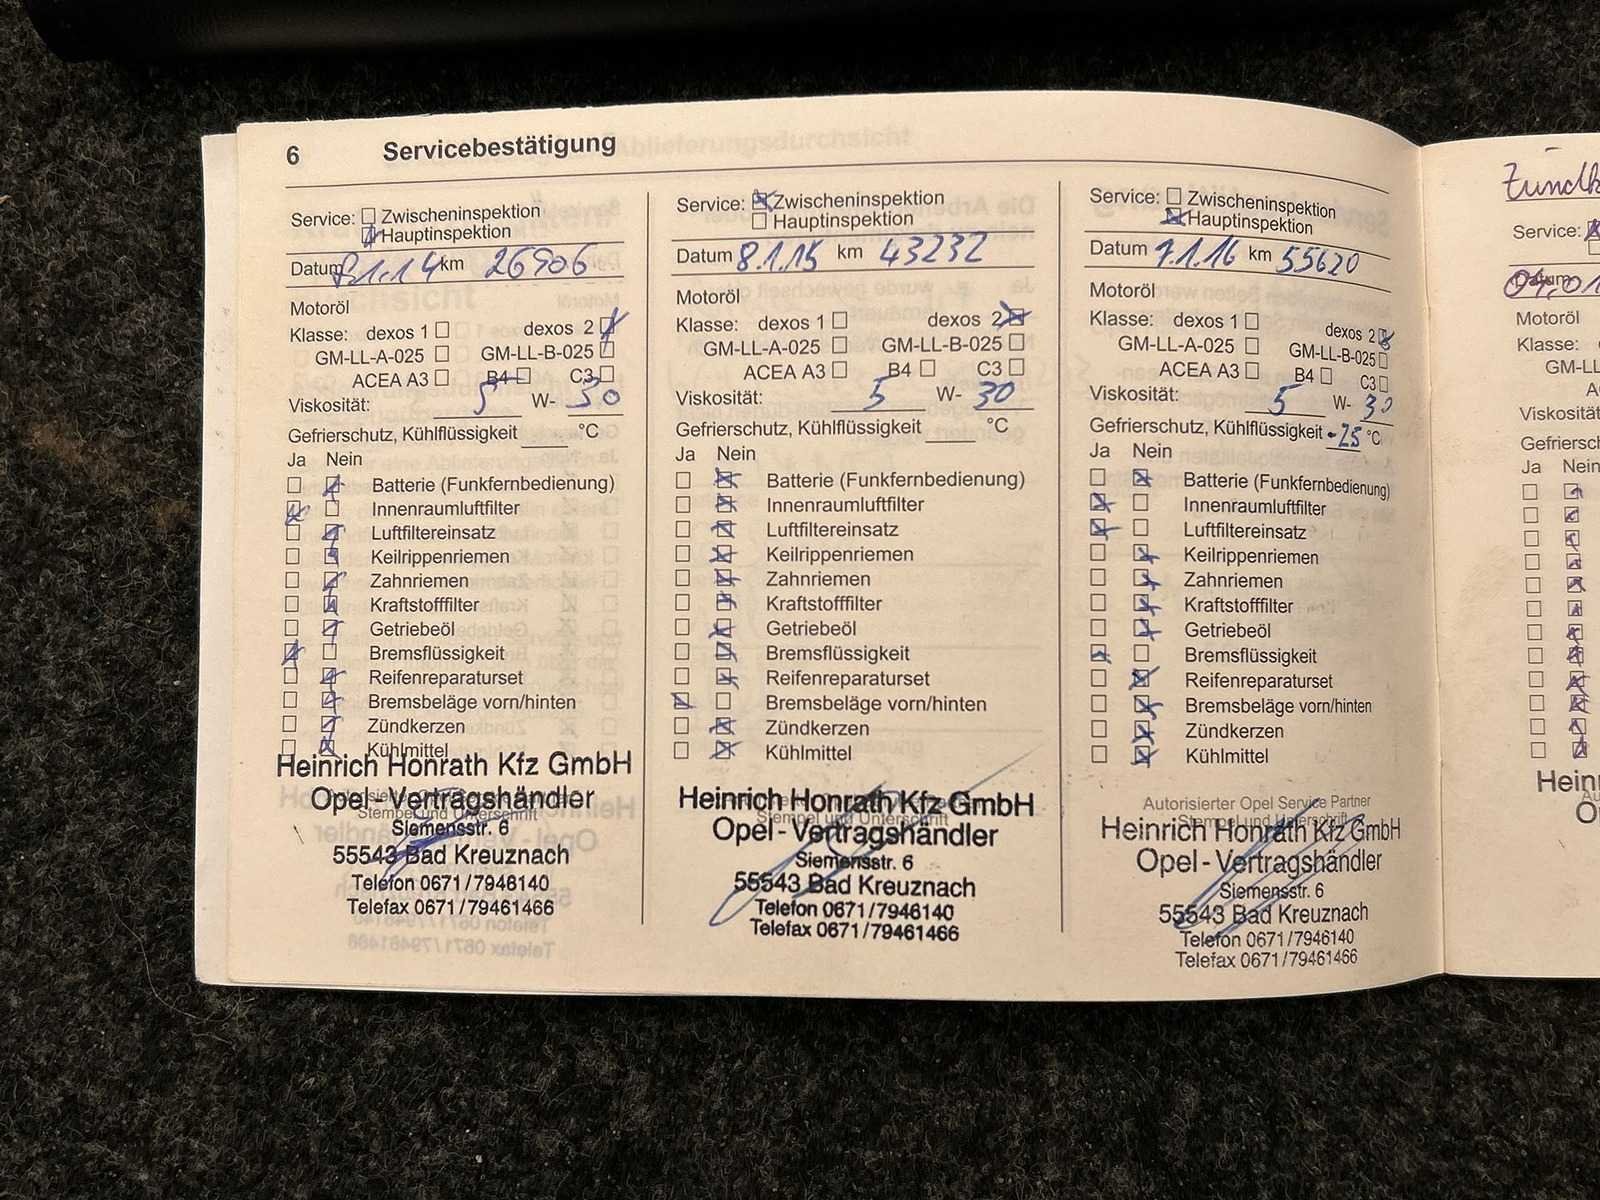 6 Servicebestätigung
Service: Zwischeninspektion
Hauptinspektion
Datum 8.1.14 km 26906
Motoröl
Klasse: dexos 1 dexos 2
GM-LL-A-025 GM-LL-B-025
ACEA A3 B4 C3
Viskosität: 5 W- 30
Gefrierschutz, Kühlflüssigkeit °C
Ja Nein
Batterie (Funkfernbedienung)
Innenraumluftfilter
Luftfiltereinsatz
Keilrippenriemen
Zahnriemen
Kraftstofffilter
Getriebeöl
Bremsflüssigkeit
Reifenreparaturset
Bremsbeläge vorn/hinten
Zündkerzen
Kühlmittel
Heinrich Honrath Kfz GmbH
Opel-Vertragshändler
Stempel und Unterschrift
Siemensstr. 6
55543 Bad Kreuznach
Telefon 0671/7946140
Telefax 0671/79461466
Service: Zwischeninspektion
Hauptinspektion
Datum 8.1.15 km 43232
Motoröl
Klasse: dexos 1 dexos 2
GM-LL-A-025 GM-LL-B-025
ACEA A3 B4 C3
Viskosität: 5 W- 30
Gefrierschutz, Kühlflüssigkeit °C
Ja Nein
Batterie (Funkfernbedienung)
Innenraumluftfilter
Luftfiltereinsatz
Keilrippenriemen
Zahnriemen
Kraftstofffilter
Getriebeöl
Bremsflüssigkeit
Reifenreparaturset
Bremsbeläge vorn/hinten
Zündkerzen
Kühlmittel
Heinrich Honrath Kfz GmbH
Stempel und Unterschrift
Opel-Vertragshändler
Siemensstr. 6
55543 Bad Kreuznach
Telefon 0671/7946140
Telefax 0671/79461466
Service: Zwischeninspektion
Hauptinspektion
Datum 7.1.16 km 55620
Motoröl
Klasse: dexos 1 dexos 2
GM-LL-A-025 GM-LL-B-025
ACEA A3 B4 C3
Viskosität: 5 W- 30
Gefrierschutz, Kühlflüssigkeit -25 °C
Ja Nein
Batterie (Funkfernbedienung)
Innenraumluftfilter
Luftfiltereinsatz
Keilrippenriemen
Zahnriemen
Kraftstofffilter
Getriebeöl
Bremsflüssigkeit
Reifenreparaturset
Bremsbeläge vorn/hinten
Zündkerzen
Kühlmittel
Autorisierter Opel Service Partner
Stempel und Unterschrift
Heinrich Honrath Kfz GmbH
Opel-Vertragshändler
Siemensstr. 6
55543 Bad Kreuznach
Telefon 0671/7946140
Telefax 0671/79461466
Service:
Datum 04.01
Motoröl
Klasse:
GM-LL
Viskosität
Gefriersch
Ja Nein
Hein